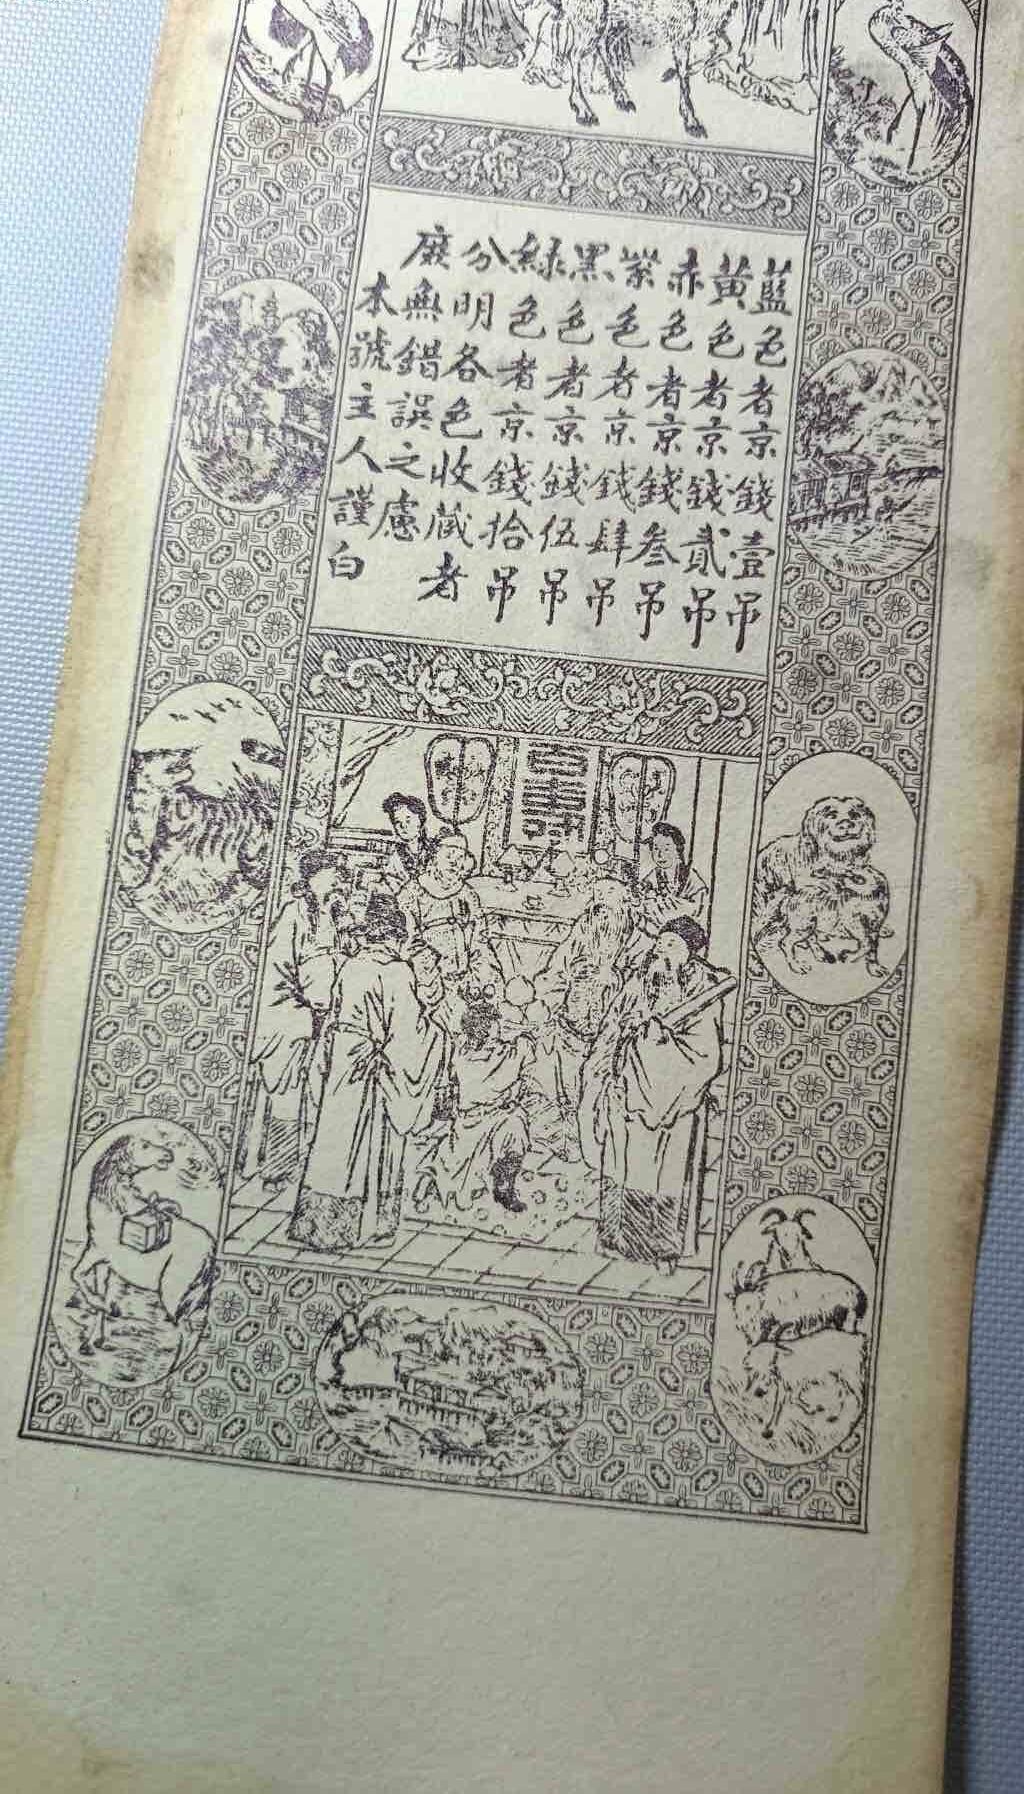 藍色者京錢壹吊
黃色者京錢貳吊
赤色者京錢叁吊
紫色者京錢肆吊
黑色者京錢伍吊
緑色者京錢拾吊
分明各色收藏者
庶無錯誤之慮
本號主人謹白